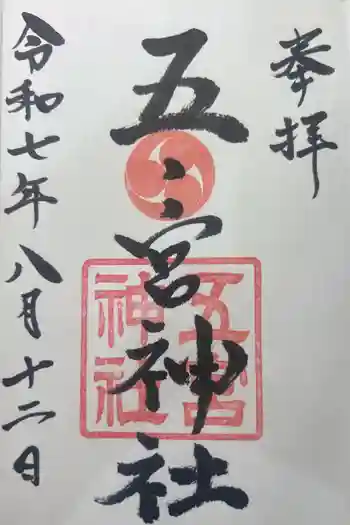 奉拝
五ミ宮神社
五宮神社
令和七年八月十二日